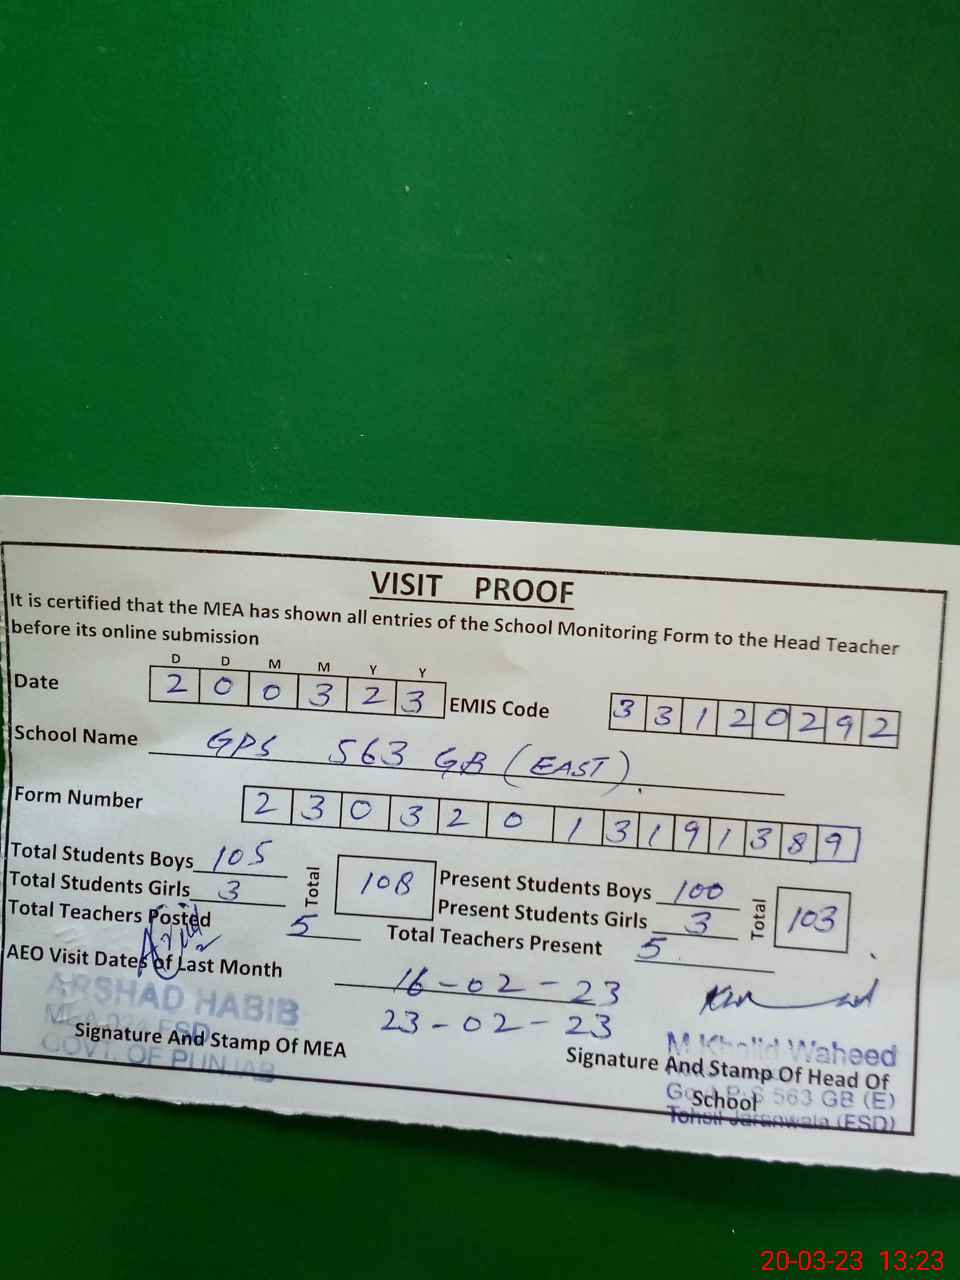 VISIT PROOF
It is certified that the MEA has shown all entries of the School Monitoring Form to the Head Teacher
before its online submission
D D M M Y Y
Date 2 0 0 3 2 3 EMIS Code 3 3 1 2 0 2 9 2
School Name GPS 563 GB (EAST).
Form Number 2 3 0 3 2 0 1 3 1 9 1 3 8 9
Total Students Boys 105 Total 108 Present Students Boys 100 Total 103
Total Students Girls 3 Present Students Girls 3
Total Teachers Posted 5 Total Teachers Present 5
AEO Visit Dates of Last Month 16-02-23
23-02-23
ARSHAD HABIB
Signature And Stamp Of MEA
GOVT. OF PUNJAB
M Khalid Waheed
Signature And Stamp Of Head Of
School
563 GB (E)
Tehsil Jaranwala (ESD)
20-03-23 13:23